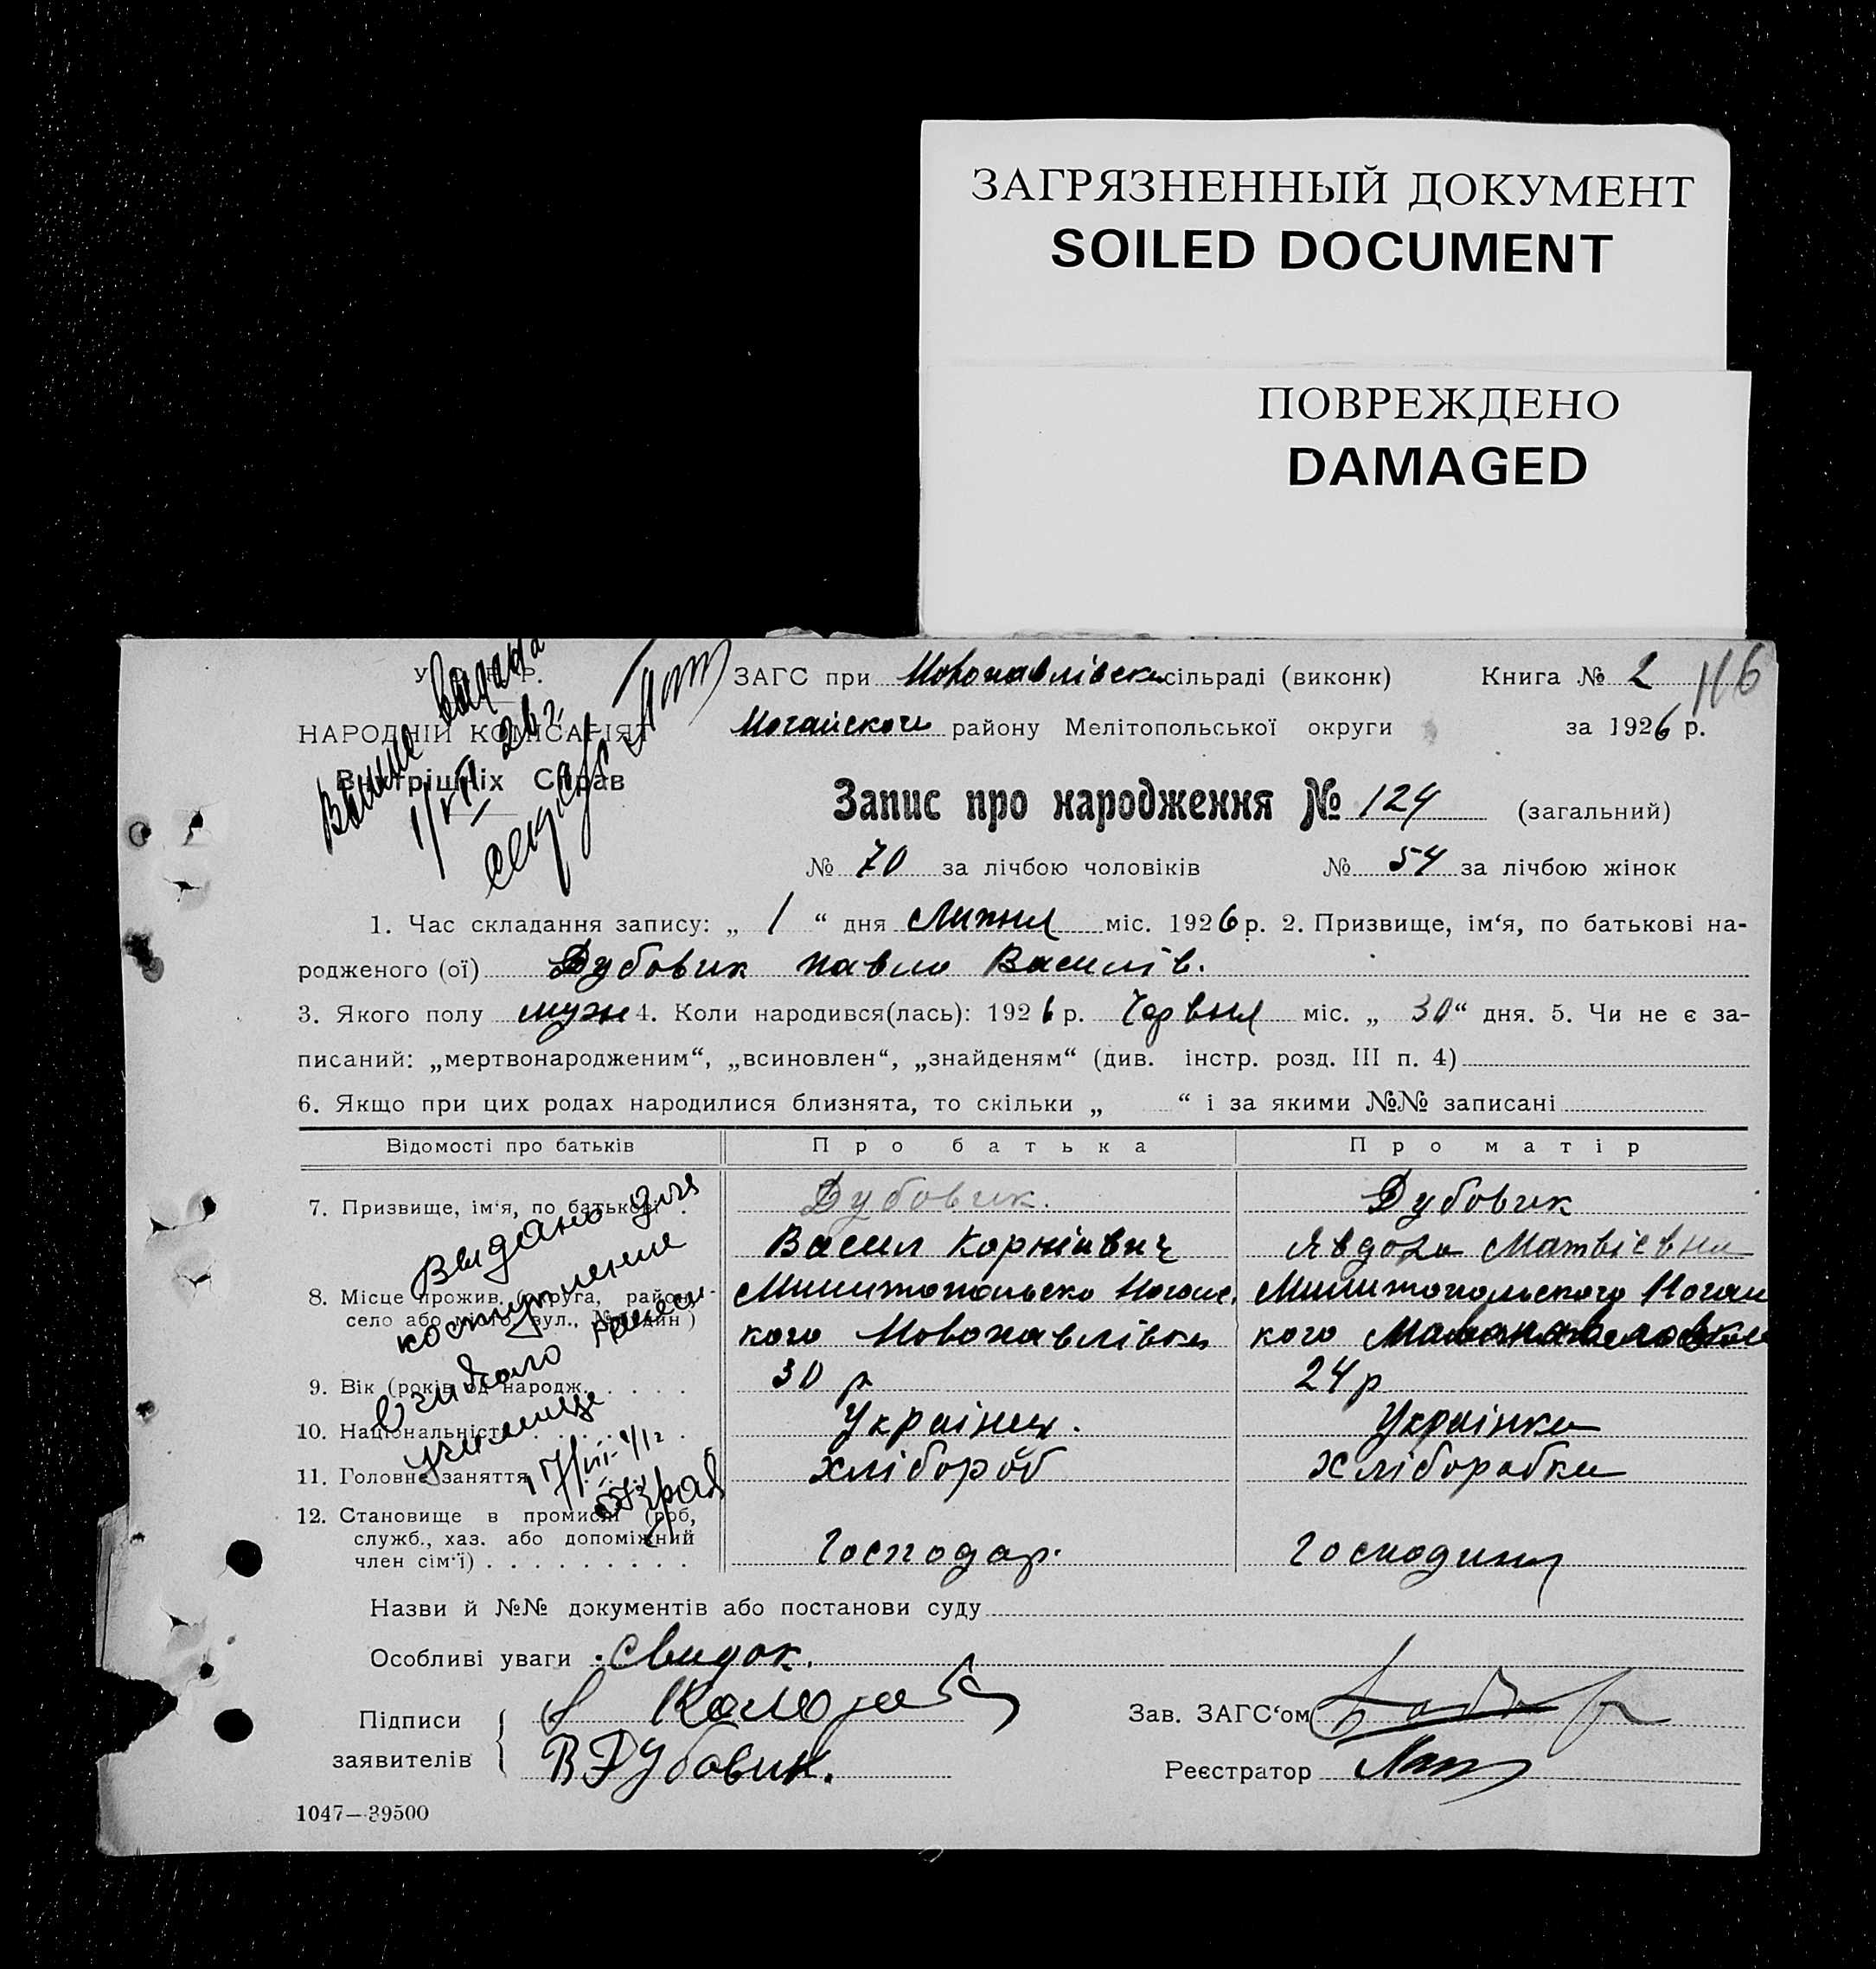 ЗАГРЯЗНЕННЫЙ ДОКУМЕНТ
SOILED DOCUMENT
ПОВРЕЖДЕНО
DAMAGED
116
ЗАГС при Новопавлівськ сільраді (виконк) Книга № 2
Ногайского району Мелітопольської округи за 1926 р.
НАРОДНІЙ КОМІСАРІЯТ
Внутрішніх Справ
Запис про народження № 124 (загальний)
№ 70 за лічбою чоловіків № 54 за лічбою жінок
1. Час складання запису: „ 1 “ дня Липня міс. 1926 р. 2. Призвище, ім‘я, по батькові на-
родженого (ої) Дубовик Павло Василів.
3. Якого полу муж 4. Коли народився(лась): 1926 р. Червня міс. „ 30 “ дня. 5. Чи не є за-
писаний: „мертвонародженим“, „всиновлен“, „знайденям“ (див. інстр. розд. III п. 4)
6. Якщо при цих родах народилися близнята, то скільки „ “ і за якими №№ записані
Відомості про батьків Про батька Про матір
7. Призвище, ім‘я, по батькові Дубовик. Дубовик
Васил Корнієвич Явдоха Матвієвна
8. Місце прожив. (округа, район,
село або місто, вул., № будин)
кого Новопавлівки кого
9. Вік (років од народж. 30 р 24 р
10. Національність Украінец. Украінка
11. Головне заняття хлібороб хліборобка
12. Становище в промислі (роб,
служб., хаз. або допоміжний
член сім‘ї) Господар. Господиня
Видано для
поступления
в
училище
Назви й №№ документів або постанови суду
Особливі уваги Свидок.
Підписи
заявителів В Дубовик.
Зав. ЗАГС‘ом
Реєстратор
1047—39500